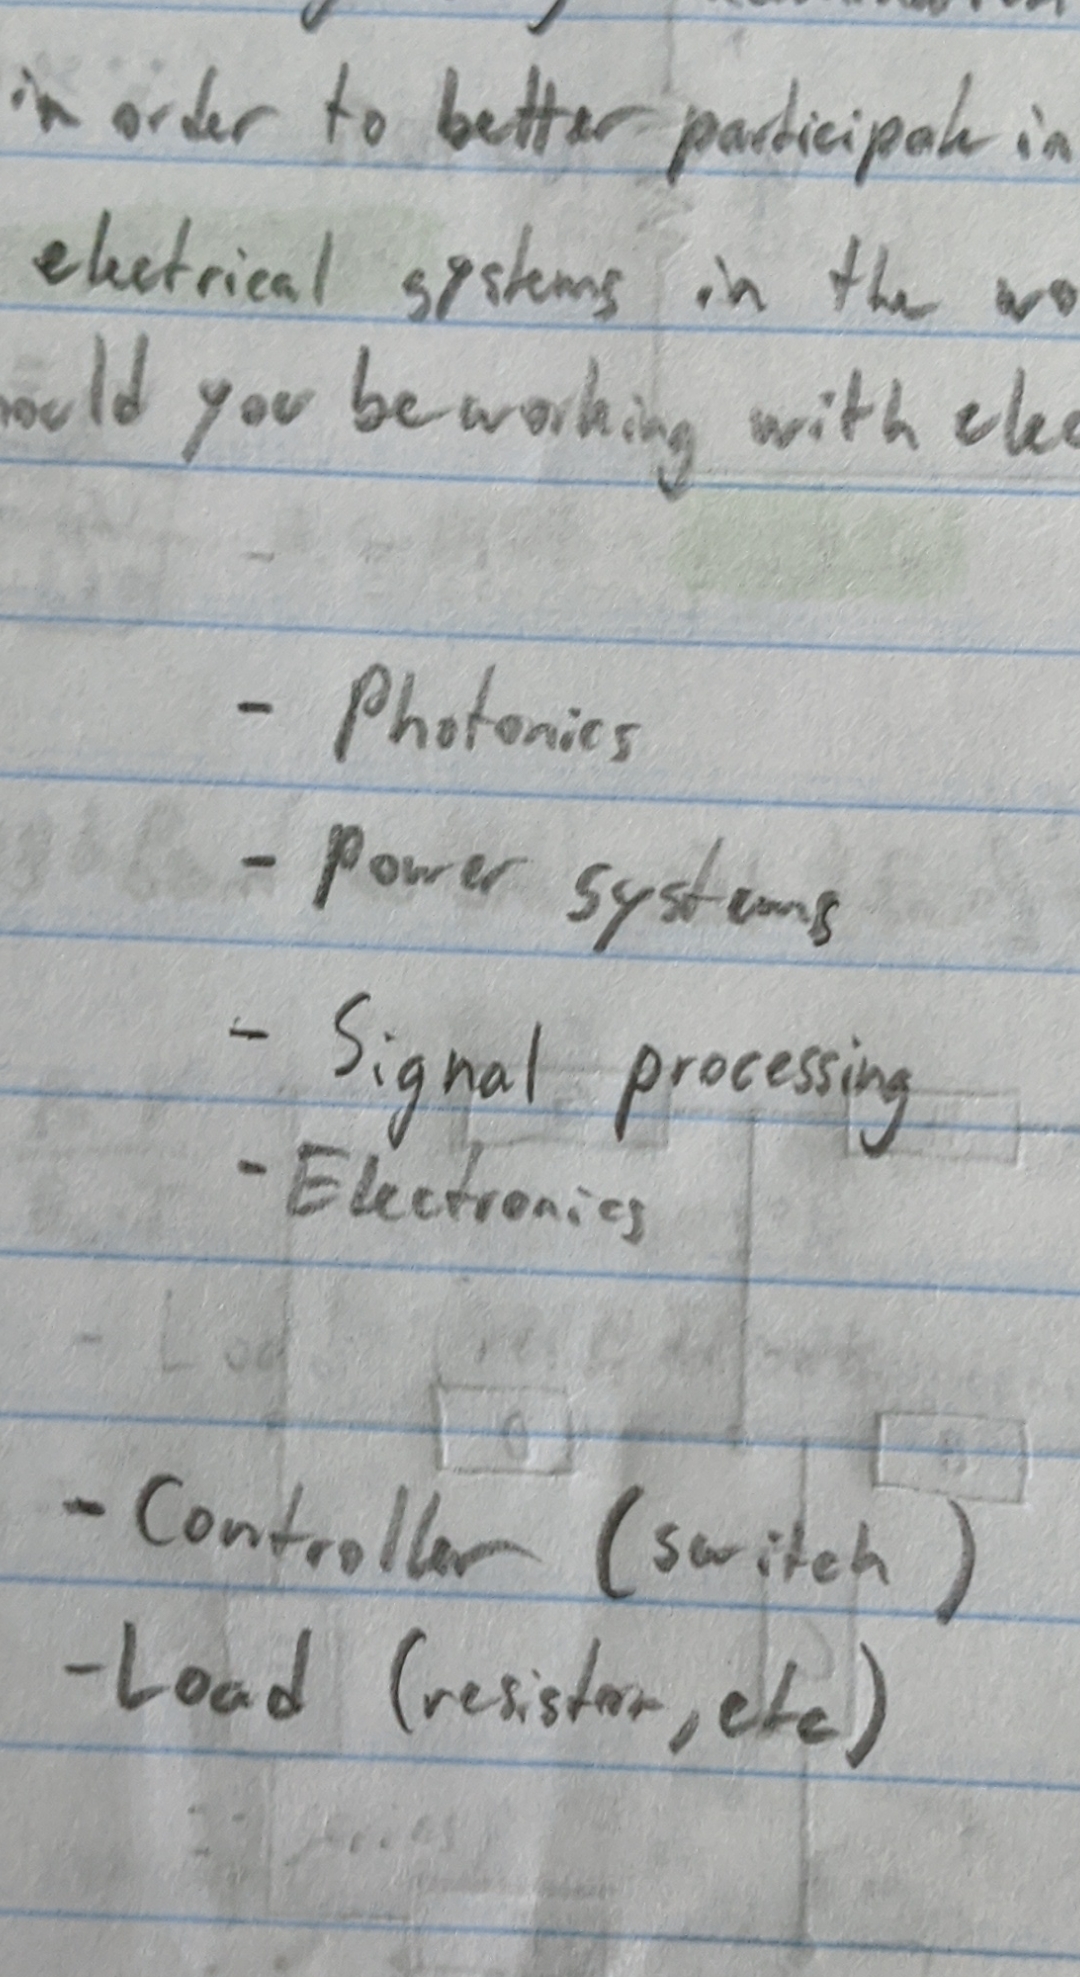 in order to better participate in
electrical systems in the
you be working with
- Photonics
- Power systems
- Signal processing
- Electronics
- Controller (switch)
- Load (resistor, etc)